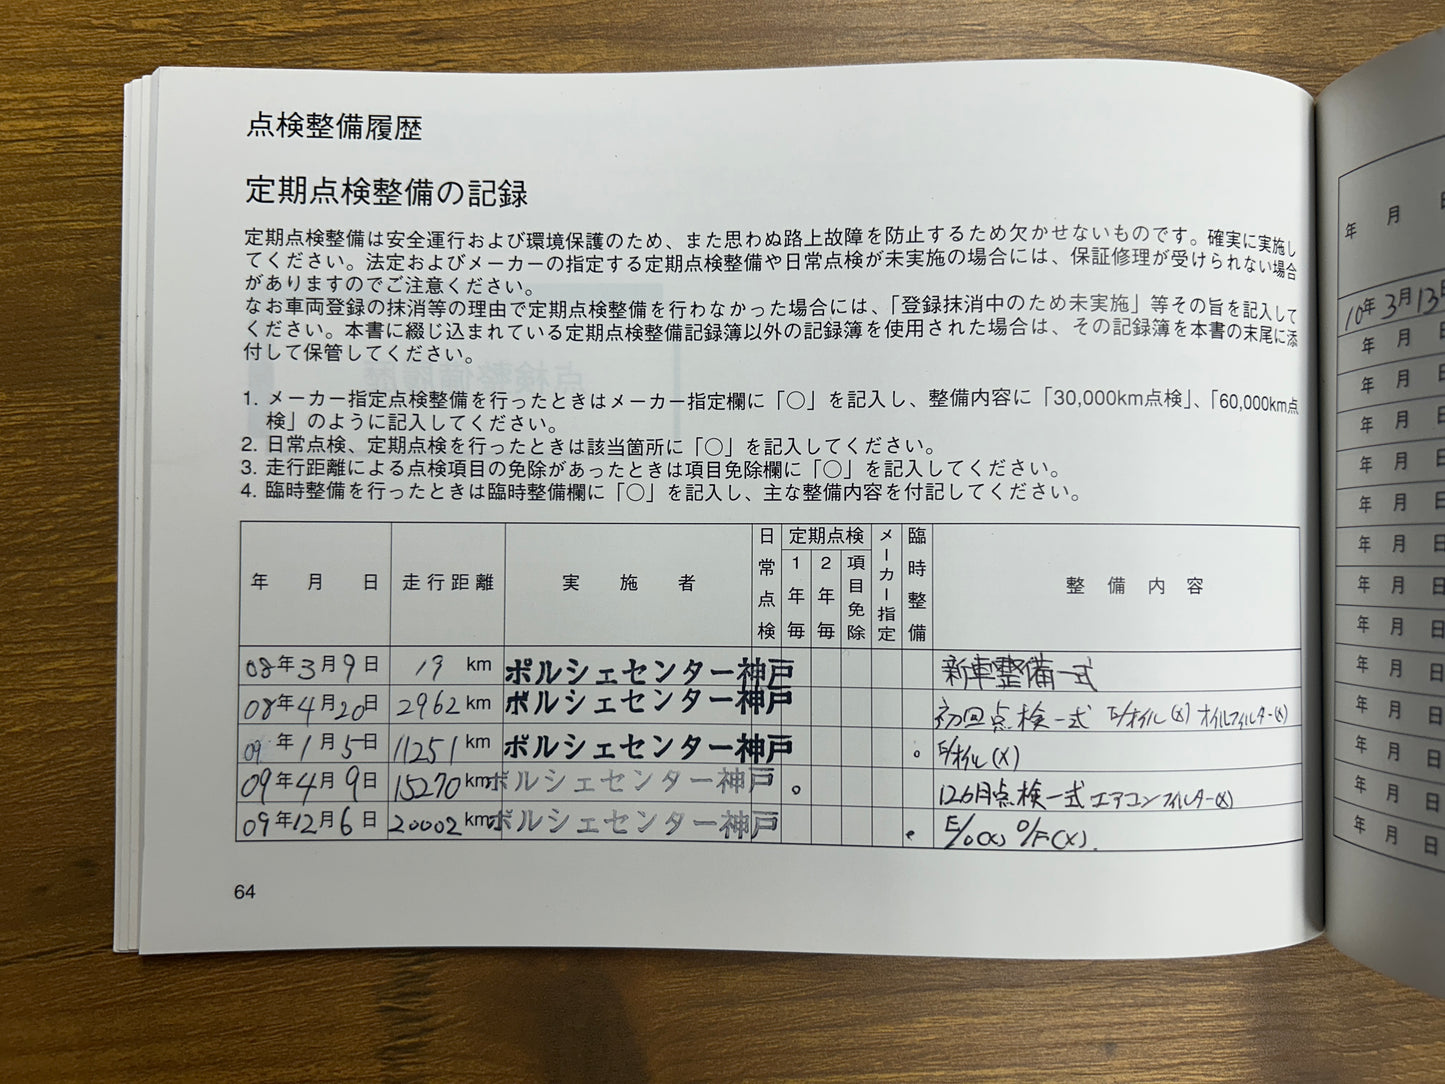 点検整備履歴
定期点検整備の記録
定期点検整備は安全運行および環境保護のため、また思わぬ路上故障を防止するため欠かせないものです。確実に実施し
てください。法定およびメーカーの指定する定期点検整備や日常点検が未実施の場合には、保証修理が受けられない場合
がありますのでご注意ください。
なお車両登録の抹消等の理由で定期点検整備を行わなかった場合には、「登録抹消中のため未実施」等その旨を記入して
ください。本書に綴じ込まれている定期点検整備記録簿以外の記録簿を使用された場合は、その記録簿を本書の末尾に添
付して保管してください。
1. メーカー指定点検整備を行ったときはメーカー指定欄に「○」を記入し、整備内容に「30,000km点検」、「60,000km点
検」のように記入してください。
2. 日常点検、定期点検を行ったときは該当箇所に「○」を記入してください。
3. 走行距離による点検項目の免除があったときは項目免除欄に「○」を記入してください。
4. 臨時整備を行ったときは臨時整備欄に「○」を記入し、主な整備内容を付記してください。
年 月 日 走行距離 実施者 日常点検 定期点検 1年毎 2年毎 項目免除 メーカー指定 臨時整備 整備内容
08年3月9日 19 km ポルシェセンター神戸 新車整備一式
08年4月20日 2962 km ポルシェセンター神戸 初回点検一式 E/オイル(X) オイルフィルター(X)
09年1月5日 11251 km ポルシェセンター神戸 ○ E/オイル(X)
09年4月9日 15270 km ポルシェセンター神戸 ○ 12ヵ月点検一式 エアコンフィルター(X)
09年12月6日 20002 km ポルシェセンター神戸 E/O(X) O/F(X).
64
年 月 日
10年3月13日
年 月 日
年 月 日
年 月 日
年 月 日
年 月 日
年 月 日
年 月 日
年 月 日
年 月 日
年 月 日
年 月 日
年 月 日
年 月 日